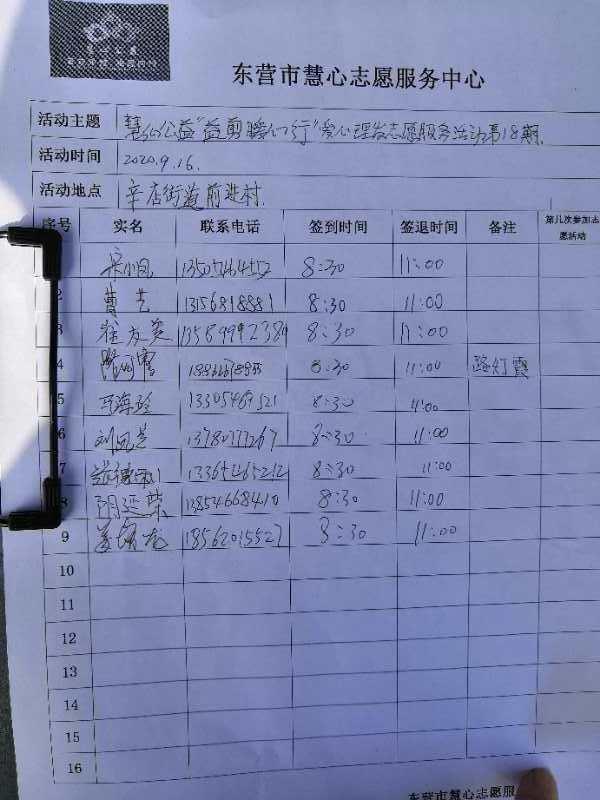 东营市慧心志愿服务中心
活动主题 慧心公益"益剪暖心行"爱心理发志愿服务活动第18期.
活动时间 2020.9.16.
活动地点 辛店街道前进村.
序号 实名 联系电话 签到时间 签退时间 备注 第几次参加志愿活动
8:30 11:00
2 曹芝 13156818881 8:30 11:00
3 崔友英 13589992389 8:30 11:00
4 8:30 11:00 路灯霞
5 马海玲 13305467521 8:30 11:00
6 刘凤芝 13780777267 8:30 11:00
7 13365465212 8:30 11:00
8 阴延荣 13854668410 8:30 11:00
9 18562015527 8:30 11:00
10
11
12
13
14
15
16
东营市慧心志愿服